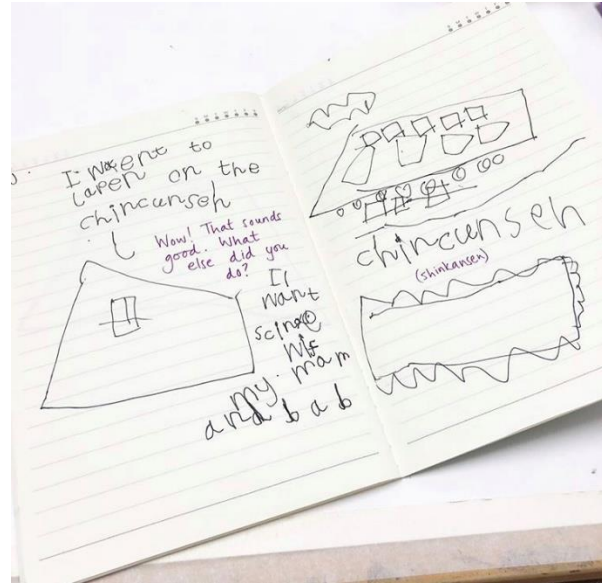 I went to
lapen on the
chincunseh
Wow! That sounds
good. What
else did you
do?
II
want
scinge
wif
my. mam
and bab
chincunseh
(shinkansen)